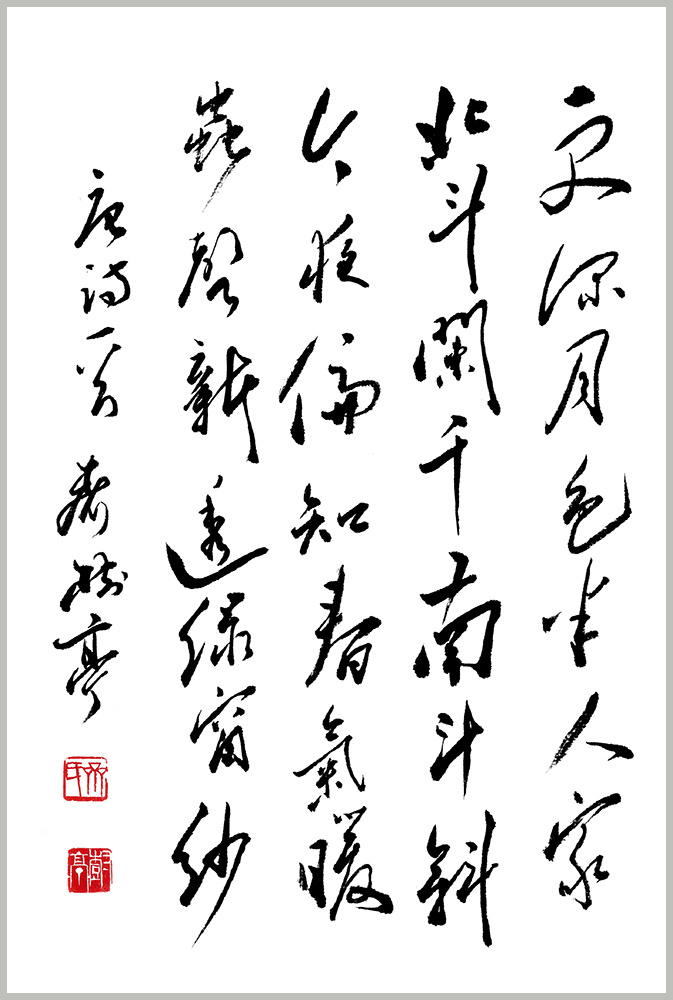 更深月色半人家
北斗闌干南斗斜
今夜偏知春氣暖
蟲聲新透綠窗紗
唐詩一首 亭